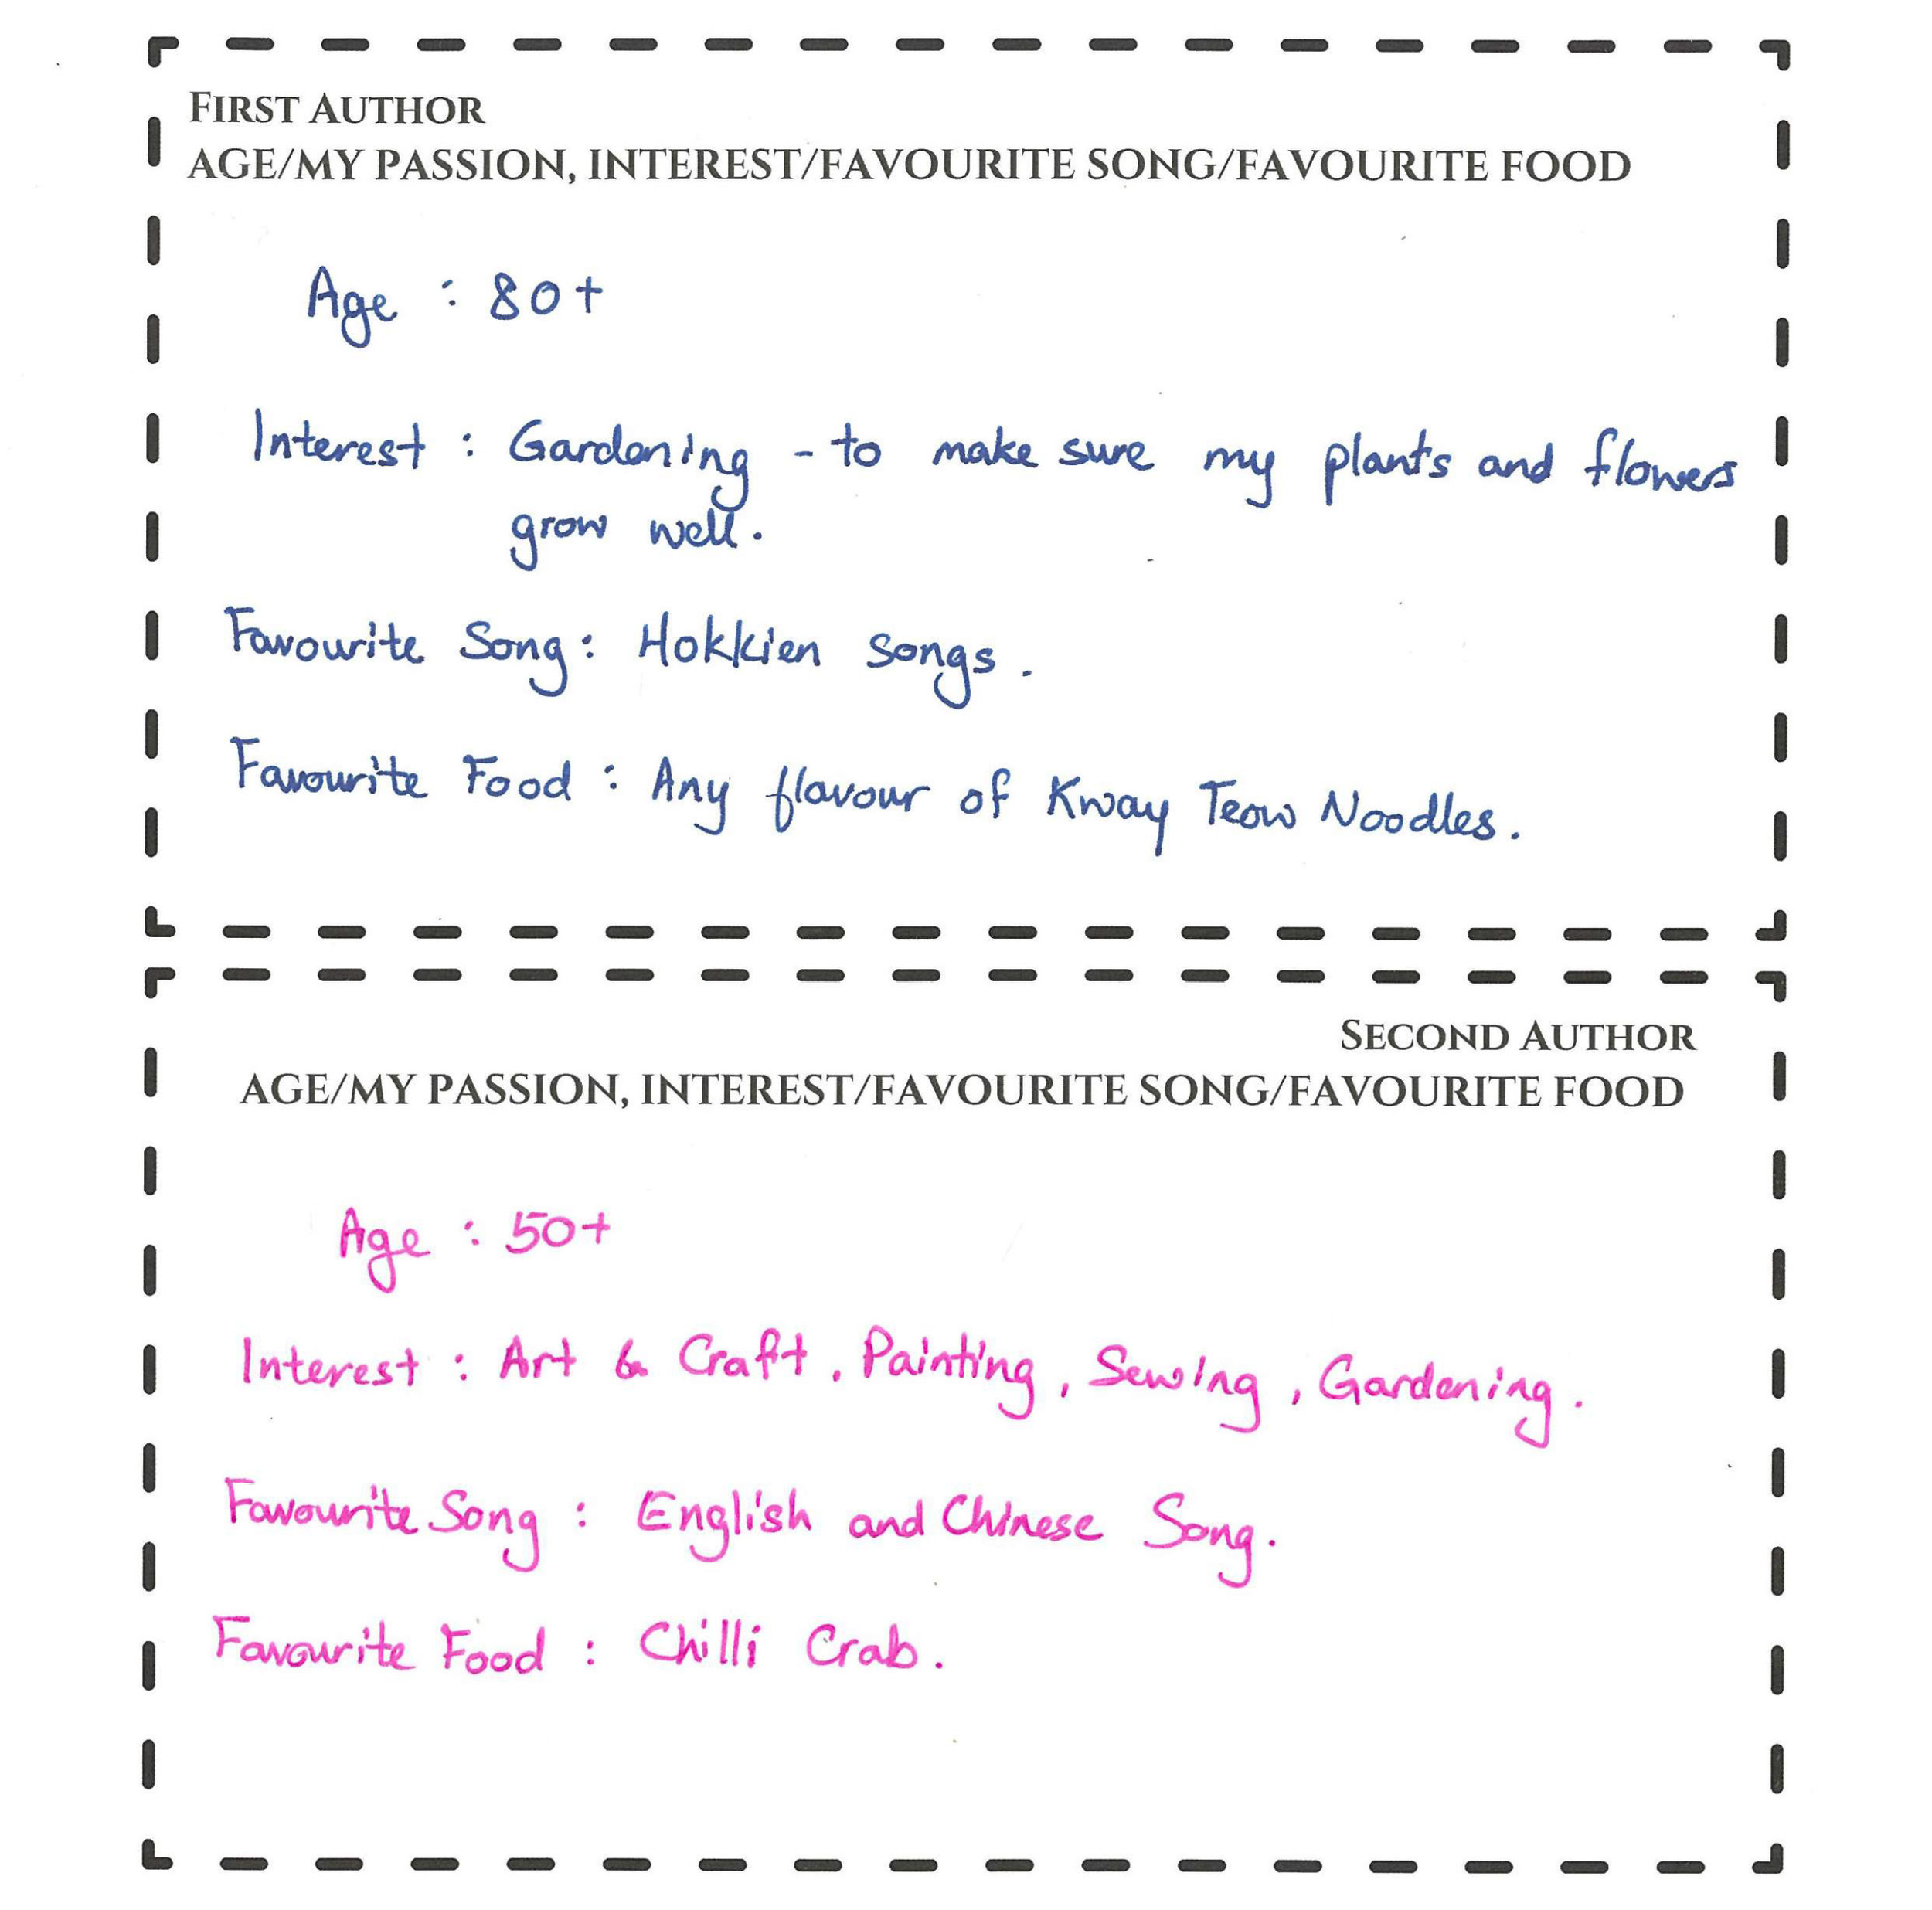 FIRST AUTHOR
AGE/MY PASSION, INTEREST/FAVOURITE SONG/FAVOURITE FOOD
Age : 80+
Interest : Gardening - to make sure my plants and flowers
grow well.
Favourite Song : Hokkien songs.
Favourite Food : Any flavour of Kway Teow Noodles.
SECOND AUTHOR
AGE/MY PASSION, INTEREST/FAVOURITE SONG/FAVOURITE FOOD
Age : 50+
Interest : Art & Craft, Painting, Sewing, Gardening.
Favourite Song : English and Chinese Song.
Favourite Food : Chilli Crab.